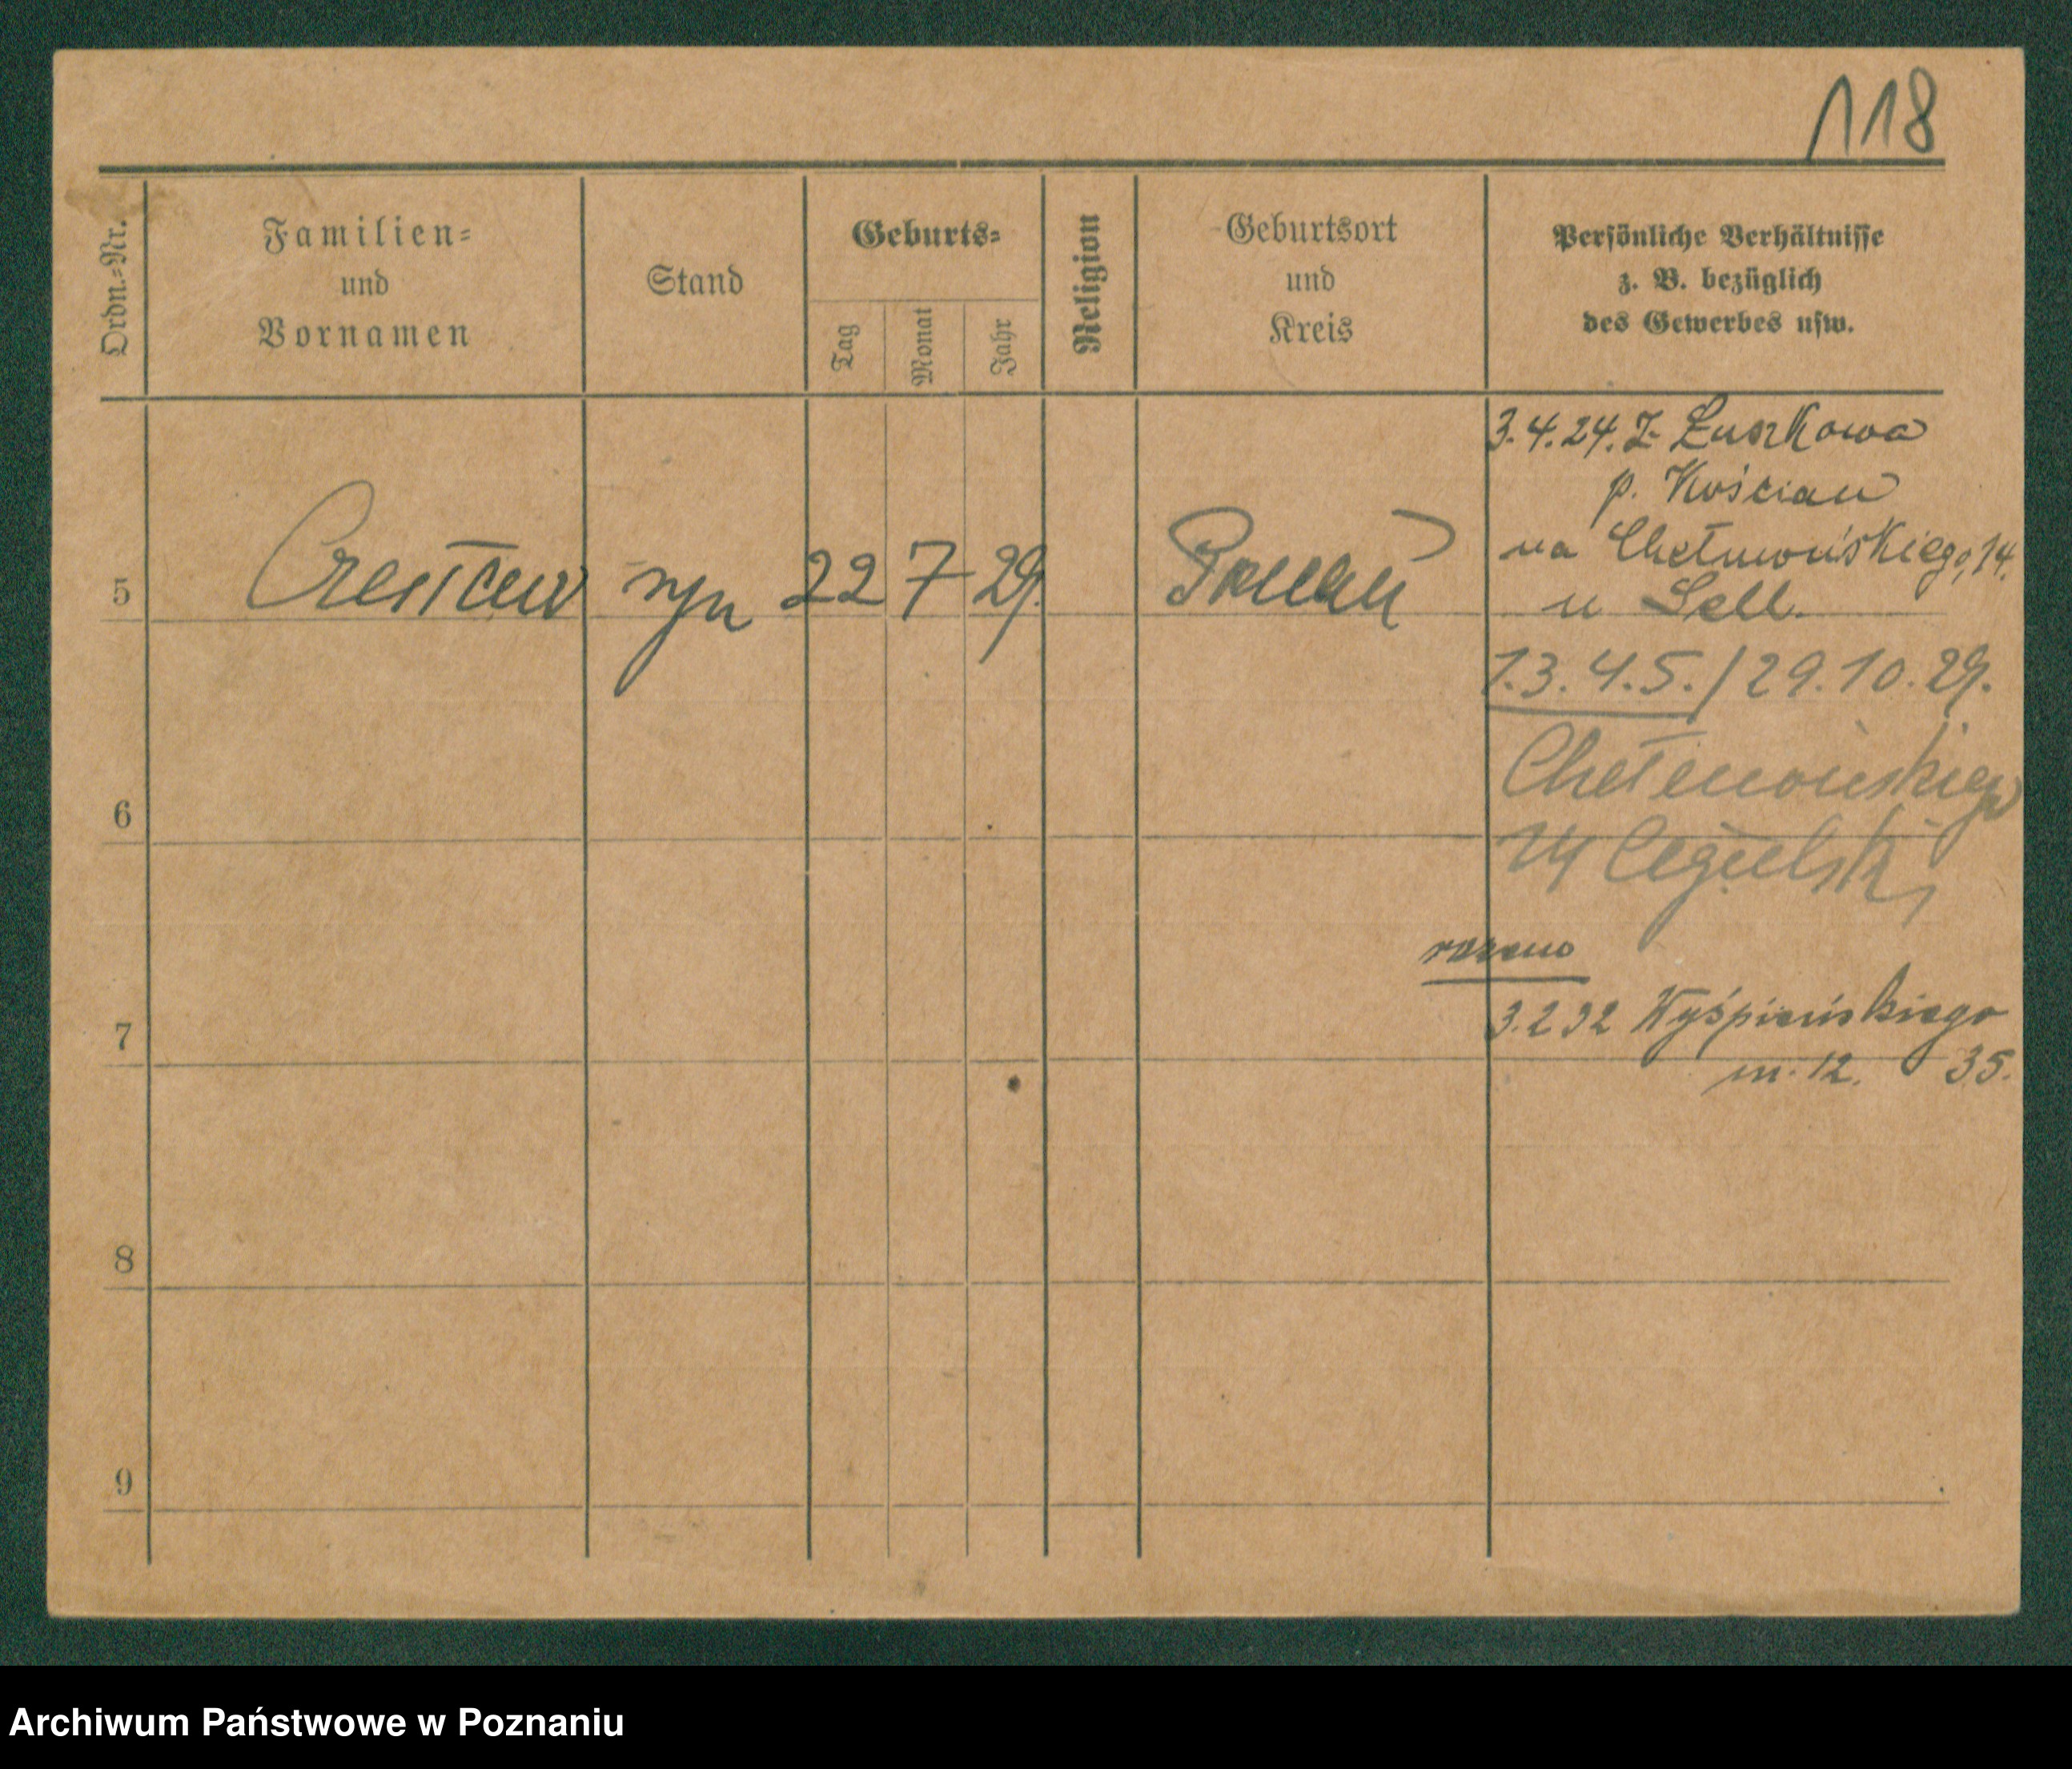 118
Ordn.=Nr.
Familien=
und
Vornamen
Stand
Geburts=
Tag
Monat
Jahr
Religion
Geburtsort
und
Kreis
Persönliche Verhältnisse
z. B. bezüglich
des Gewerbes usw.
3.4.24. Z Łuszkowa
p. Kościan
na Chełmońskiego, 14.
u Sell.
5 Czesław syn 22 7 29. Poznań
1.3.4.5./29.10.29.
Chełmońskiego
6
14 Cegielski
razem
7
3.2 32 Wyśpiańskiego
m. 12. 35.
8
9
Archiwum Państwowe w Poznaniu